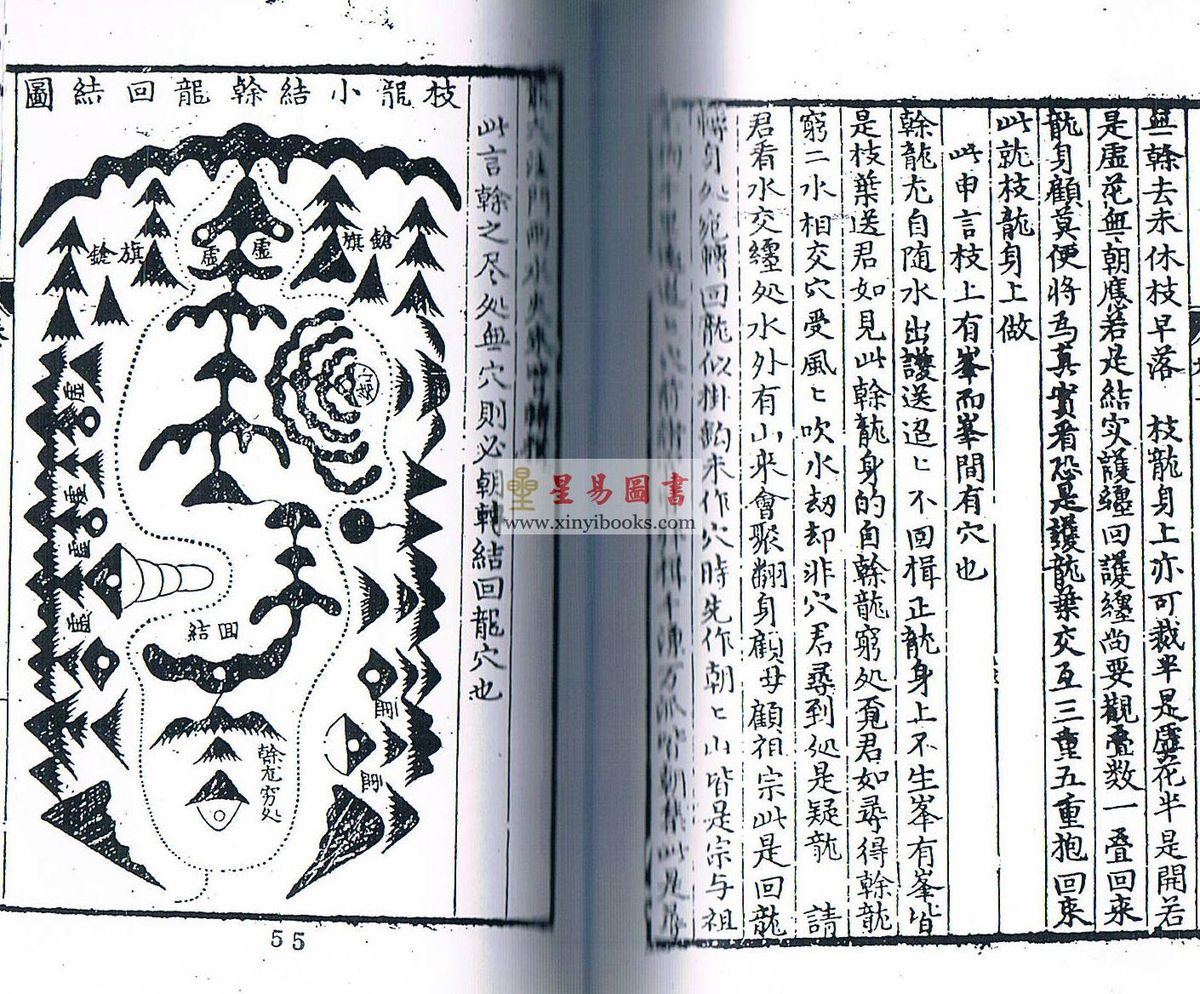 去未休枝早落　枝龍身上亦可裁半是虛花半是開若
是虛花無朝應若是結实護纏回護纏尚要觀疊数一疊回來
龍身顧莫便將為真實看恐是護龍葉交互三重五重抱回來
此就枝龍身上做
此申言枝上有峯而峯間有穴也
榦龍尤自随水出護送迢ヒ不回揖正龍身上不生峯有峯皆
是枝葉送君如見此榦龍身的自榦龍窮処覔君如尋得榦龍
窮二水相交穴受風ヒ吹水刼却非穴君尋到処是疑龍　請
君看水交纏処水外有山來會聚翻身顧母顧祖宗此是回龍
身処宛轉回龍似掛鈎未作穴時先作朝ヒ山皆是宗与祖
此言榦之尽処無穴則必朝轉結回龍穴也
枝龍小結榦龍回結圖
旗鎗
旗鎗
虛
虛
小結
虛
虛
虛
虛
回結
榦龍窮処
55
星易圖書
www.xinyibooks.com